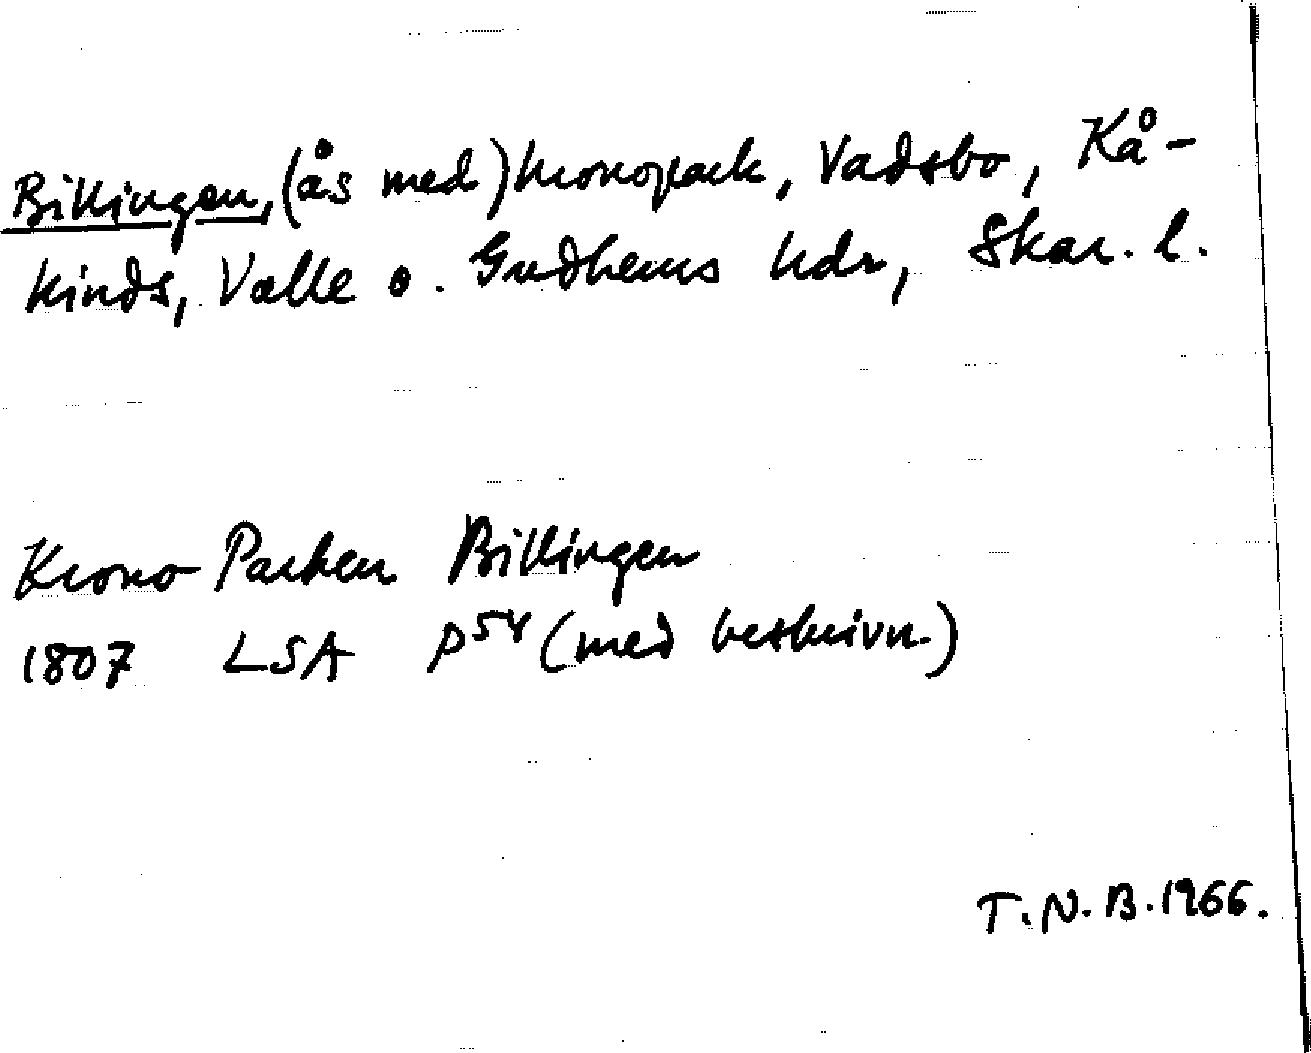 Billingen, (ås med) kronopark, Vadsbo, Kå-
kinds, Valle o. Gudhems hdr, Skar. l.
Krono Parken Billingen
1807 LSA P 54 (med beskrivn.)
T.N.B. 1966.